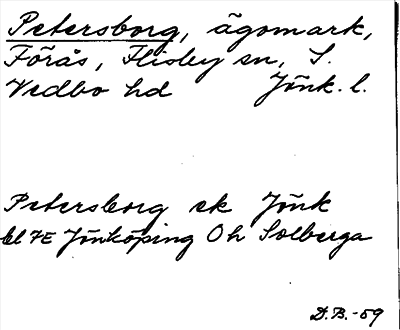 Petersborg, ägomark,
Förås, Flisby sn, S.
Vedbo hd Jönk. l.
Petersborg ek Jönk
bl 7E Jönköping Oh Solberga
D.B.-59